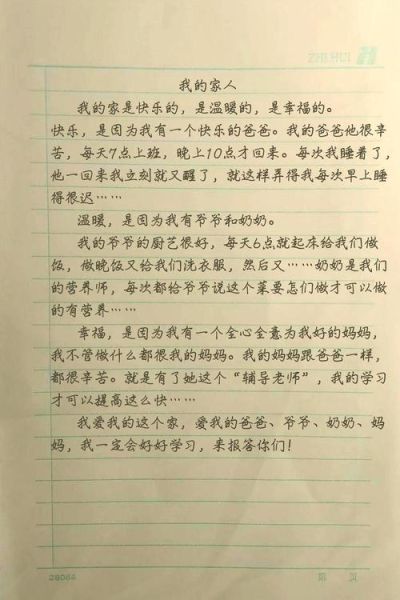 我的家人
我的家是快乐的，是温暖的，是幸福的。
快乐，是因为我有一个快乐的爸爸。我的爸爸他很辛
苦，每天7点上班，晚上10点才回来。每次我睡着了，
他一回来我立刻就又醒了，就这样弄得我每次早上睡
得很迟……
温暖，是因为我有爷爷和奶奶。
我的爷爷的厨艺很好，每天6点就起床给我们做
饭，做晚饭又给我们洗衣服，然后又……奶奶是我们
的营养师，每次都给爷爷说这个菜要怎们做才可以做
的有营养……
幸福，是因为我有一个全心全意为我好的妈妈，
我不管做什么都很我的妈妈。我的妈妈跟爸爸一样，
都很辛苦。就是有了她这个“辅导老师”，我的学习
才可以提高这么快……
我爱我的这个家，爱我的爸爸、爷爷、奶奶、妈
妈，我一定会好好学习，来报答你们！
28064
第 页